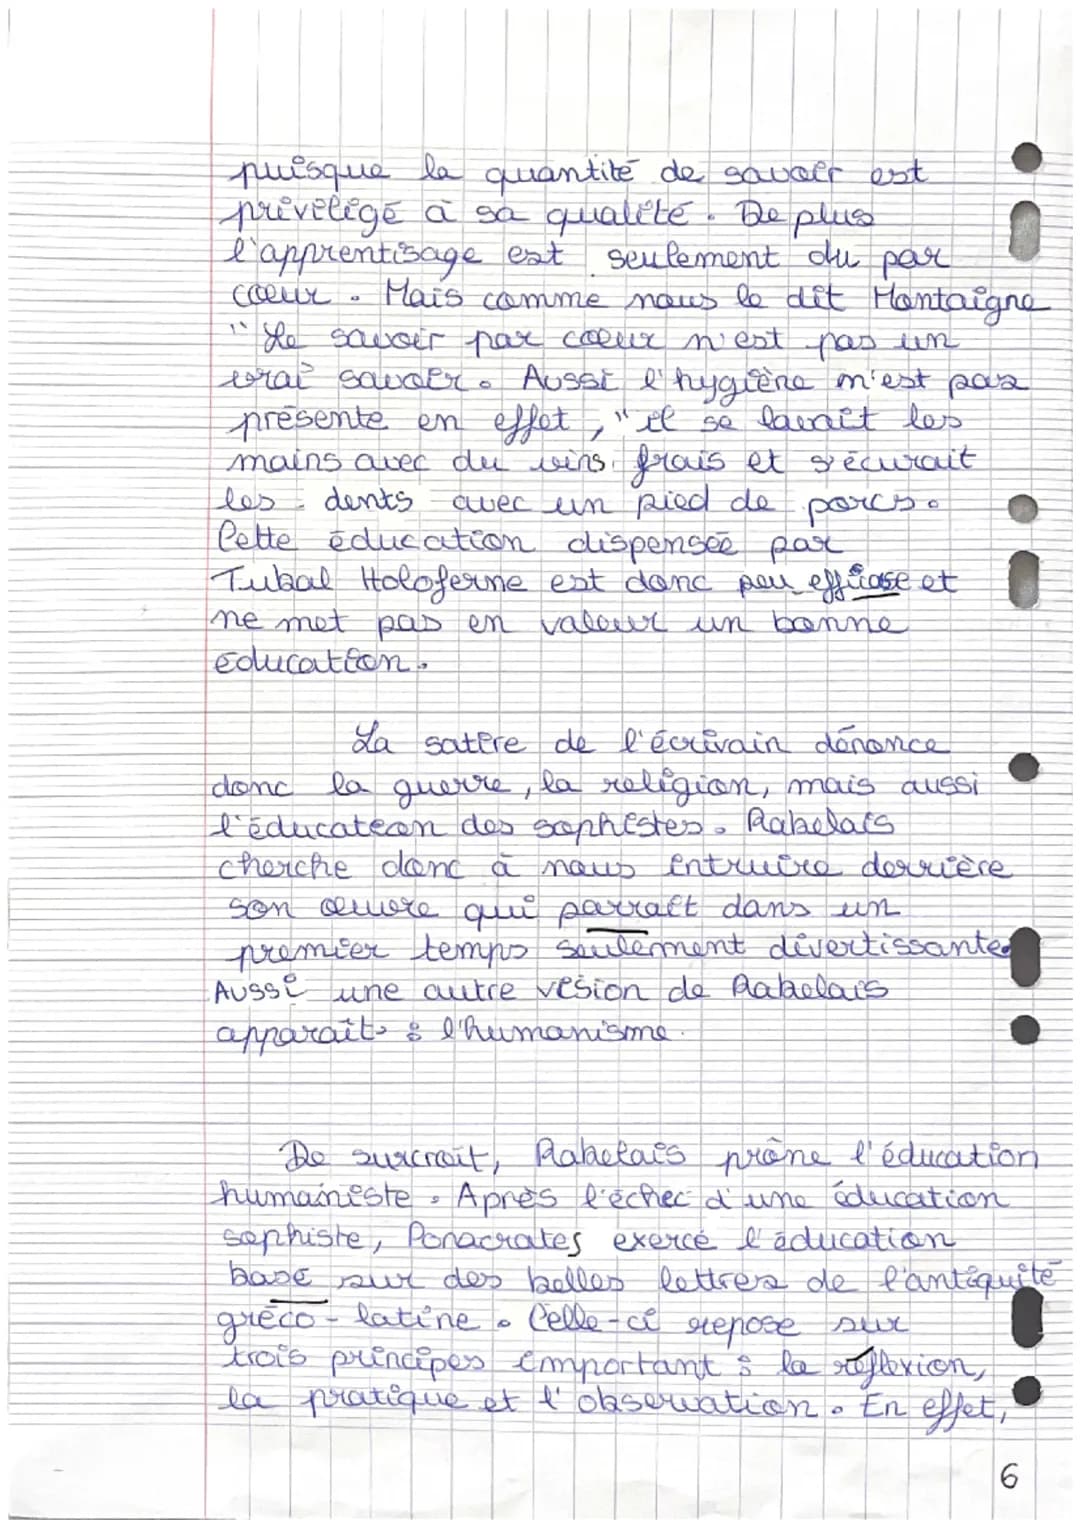 puisque la quantité de savoir est
privilégé à sa qualité. De plus
l'apprentisage est seulement du par
coeur. Mais comme nous le dit Montaigne
"Le savoir par coeur n'est pas un
vrai savoir. Aussi l'hygiène n'est pas
présente en effet, "il se lavait les
mains avec du vins frais et s'écurait
les dents avec un pied de porcs.
Cette éducation dispensée par
Tubal Holoferne est donc peu efficase et
ne met pas en valeur un bonne
éducation.
La satire de l'écrivain dénonce
donc la guerre, la religion, mais aussi
l'éducation des sophistes. Rabelais
cherche donc à nous intruire derrière
son œuvre qui parrait dans un
premier temps seulement divertissante.
Aussi une autre vision de Rabelais
apparaît : l'humanisme.
De surcroit, Rabelais prône l'éducation
humainiste. Après l'échec d'une éducation
sophiste, Ponacrates exerce l'éducation
basé sur des belles lettres de l'antiquité
gréco-latine. Celle-ci repose sur
trois principes important : la réflexion,
la pratique et l'observation. En effet,
6